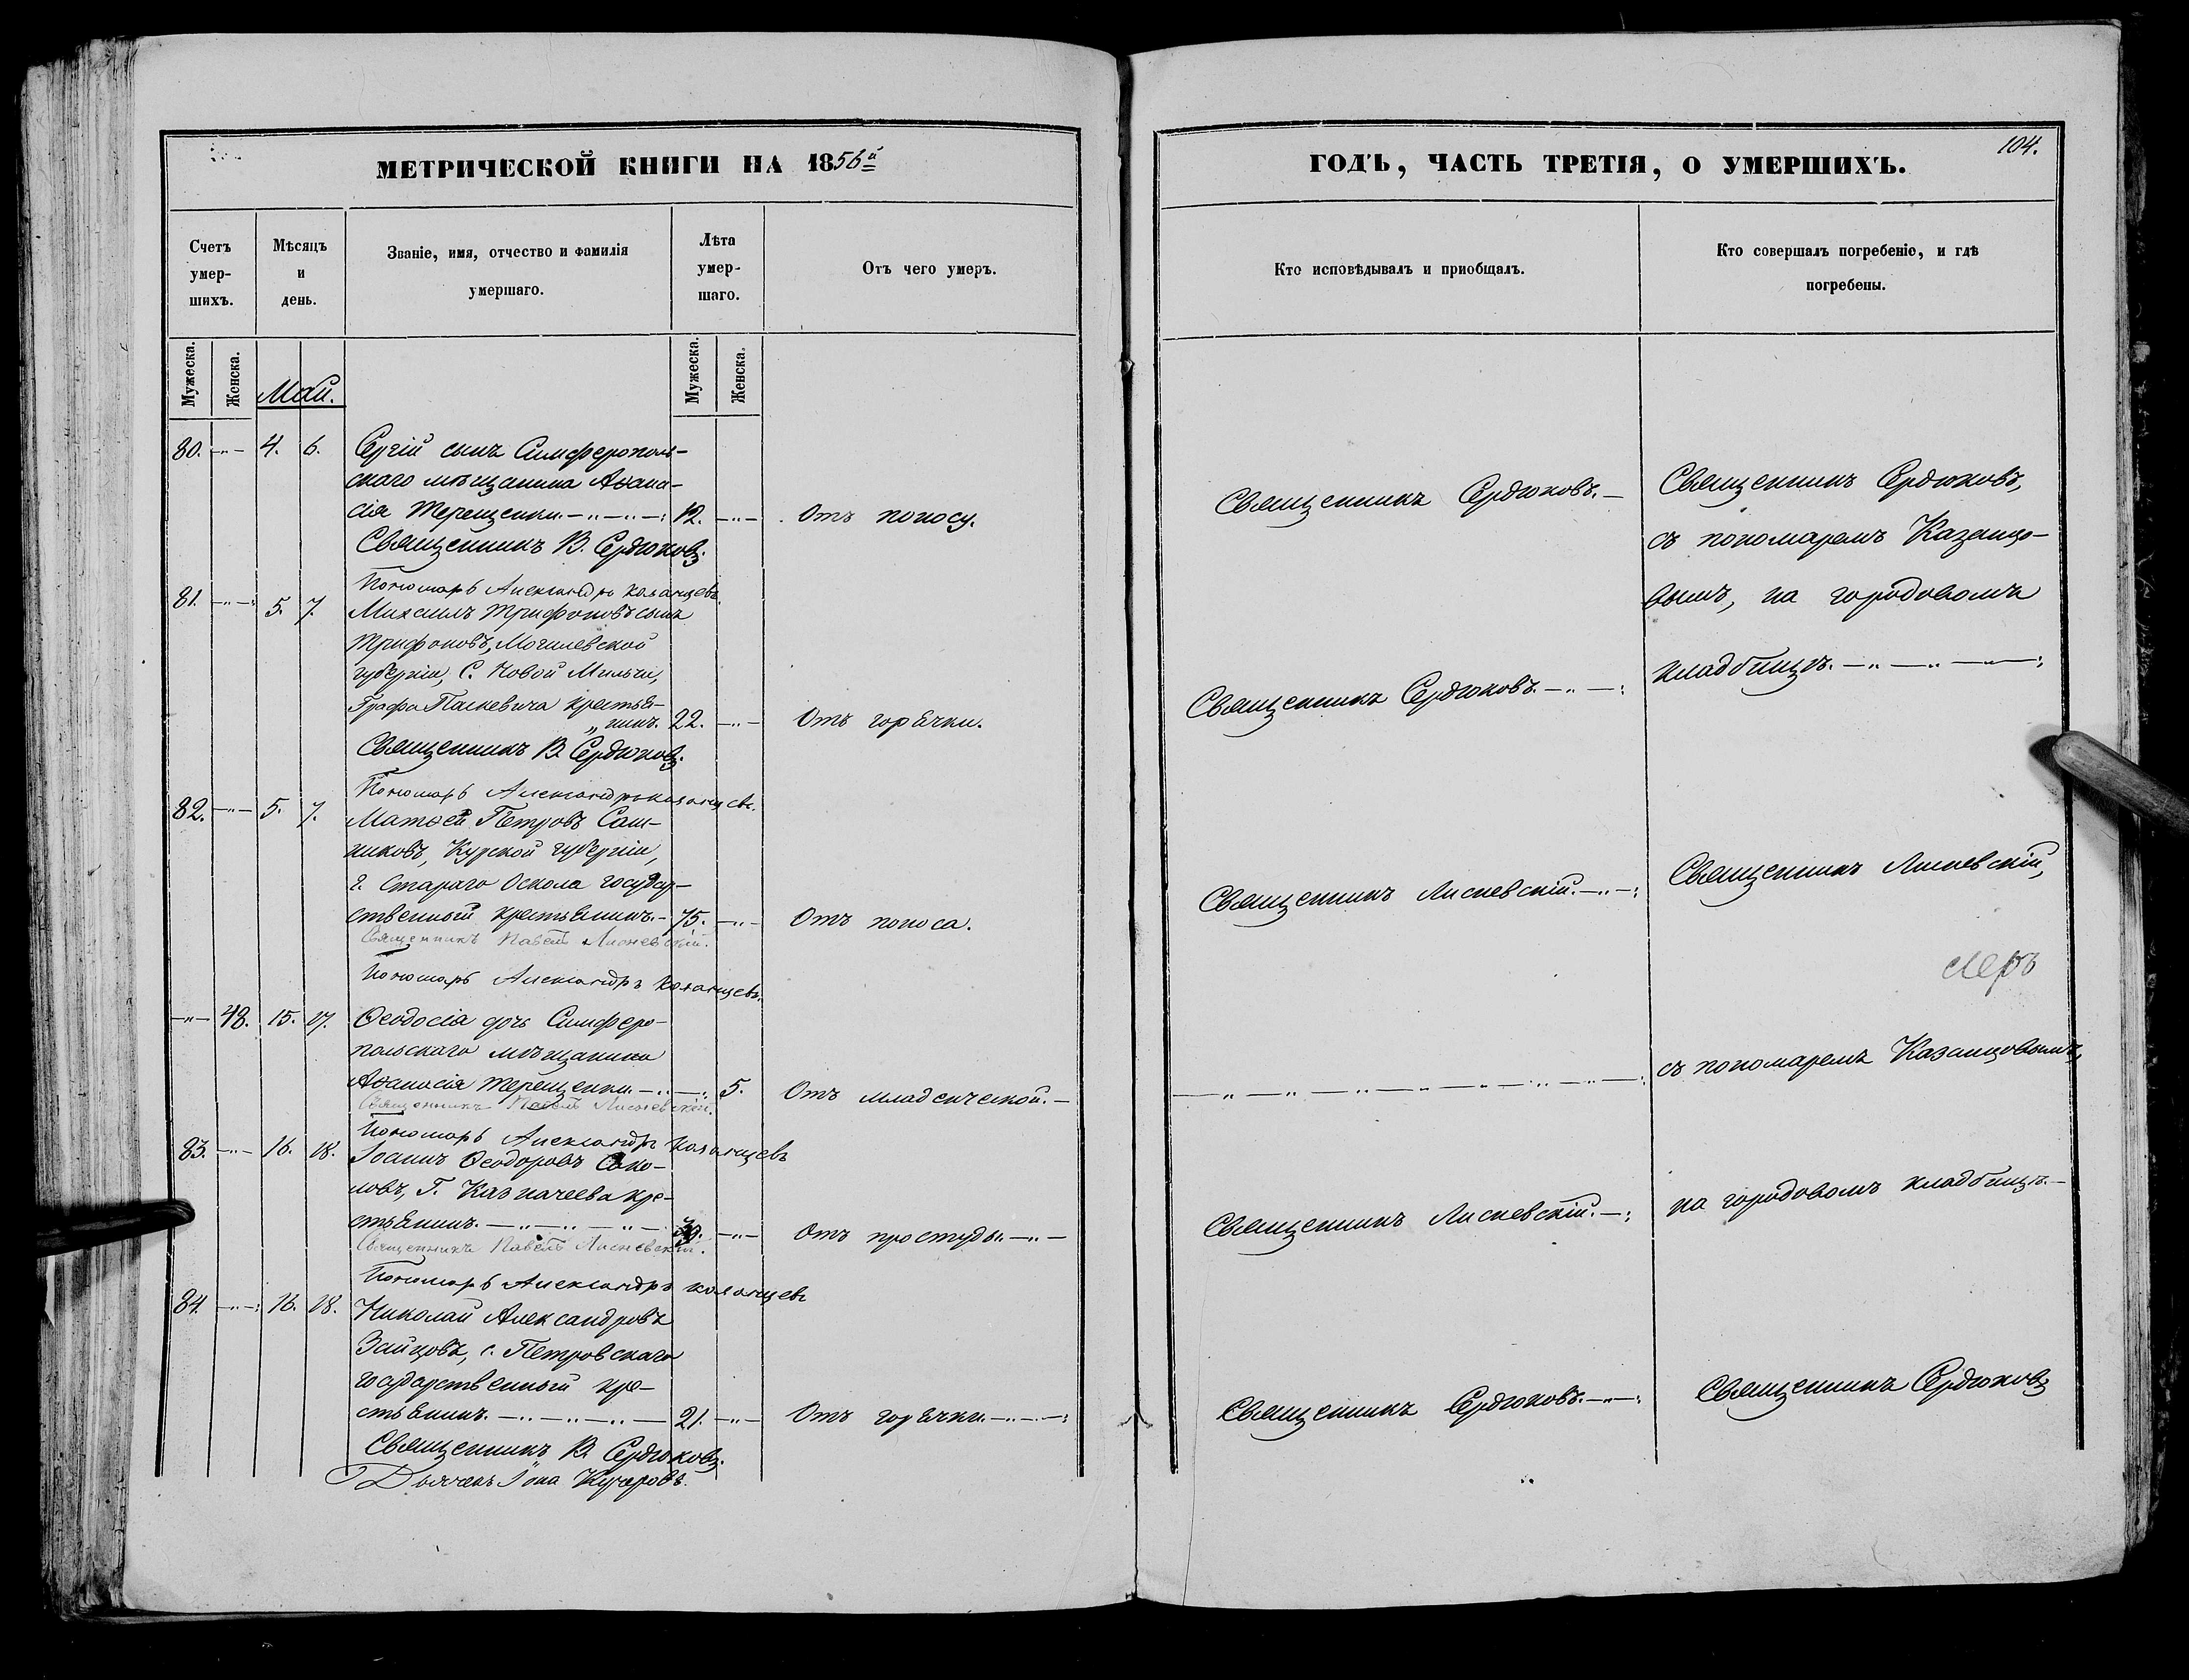 МЕТРИЧЕСКОЙ КНИГИ НА 1856й
Счетъ умер- шихъ.
Мѣсяцъ и день.
Званіе, имя, отчество и фамилія умершаго.
Лѣта умер- шаго.
Отъ чего умеръ.
Мужеска. Женска. Май. Мужеска. Женска.
80. —„— 4. 6. Сергій сынъ Симферополь-
скаго мѣщанина Аѳана-
сія Терещенки.—„—„—: 12. —„— Отъ поносу.
Священникъ В. Сердюковъ.
Пономарь Александръ Казанцевъ.
81. —„—: 5. 7. Михаилъ Трифоновъ сынъ
Трифоновъ, Могилевской
губерніи, С. Новой Мильчи,
Графа Паскевича крестья-
„нинъ. 22. —„— Отъ горячки.
Священникъ В. Сердюковъ.
Пономарь Александръ Казанцевъ.
82. —„— 5. 7. Матѳей Петровъ Саш-
никовъ, Курской губерніи,
г. Стараго Оскола государ-
ственный крестьянинъ.— 75. —„— Отъ поноса.
Священникъ Павелъ Лисневскій.
Пономарь Александръ Казанцевъ.
—„— 48. 15. 17. Ѳеодосія дочь Симферо-
польскаго мѣщанина
Аѳанасія Терещенки.—„—: 5. Отъ младенческой.—
Священникъ Павелъ Лисневскій.
Пономарь Александръ Казанцевъ
83. —„— 16. 18. Іоаннъ Ѳеодоровъ Соко-
ловъ, Г. Казначеева кре-
стьянинъ.—„—„—„— —„— Отъ простуды.—„—
Священникъ Павелъ Лисневскій.
Пономарь Александръ Казанцевъ
84. —„—: 16. 18. Николай Александровъ
Зайцовъ, с. Петровскаго
государственный кре-
стьянинъ.—„—„—„— 21. —„— Отъ горячки.—„—„—:
Священникъ В. Сердюковъ.
Дьячекъ Іона Кучеровъ.
ГОДЪ, ЧАСТЬ ТРЕТІЯ, О УМЕРШИХЪ.
104.
Кто исповѣдывалъ и пріобщалъ.
Кто совершалъ погребеніе, и гдѣ погребены.
Священникъ Сердюковъ.—
Священникъ Сердюковъ,
съ пономаремъ Казанцо-
вымъ, на городовомъ
кладбищѣ.—„—„—„—:
Священникъ Сердюковъ.—„—:
Священникъ Лисневскій.—„—:
Священникъ Лисневскій,
—„—„—„—„—„—„—:
съ пономаремъ Казанцовымъ,
Священникъ Лисневскій.—:
на городовомъ кладбищѣ.—
Священникъ Сердюковъ.—„—:
Священникъ Сердюковъ,